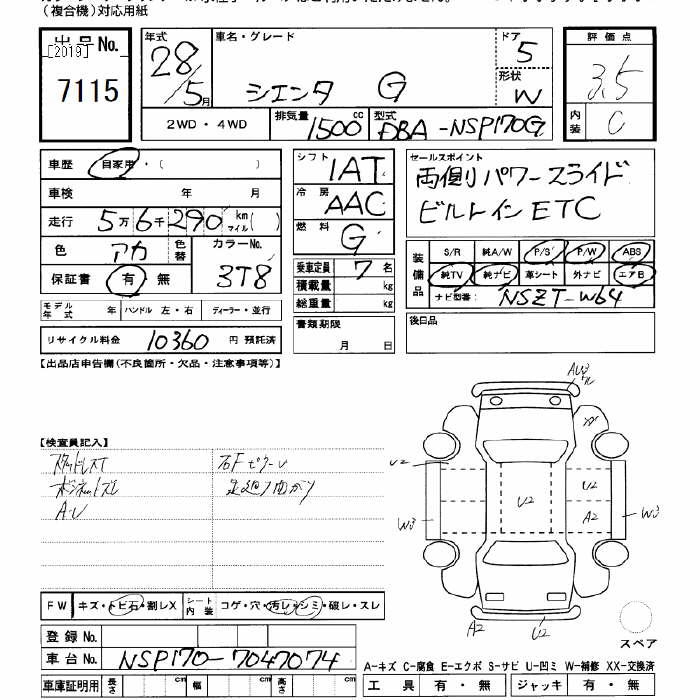 （複合機）対応用紙
出品No. [2019] 7115
年式 28/5月
車名・グレード シエンタ G
ドア 5
形状 W
2WD・4WD
排気量 1500cc
型式 DBA-NSP170G
評価点 3.5
内装 C
車歴 自家用・（ ）
車検 年 月
走行 5万6千290 km マイル( )
色 アカ 色替 カラーNo. 3T8
保証書 有・無
モデル年式 年 ハンドル 左・右 ディーラー・並行
リサイクル料金 10360 円 預託済
シフト 1AT
冷房 AAC
燃料 G
乗車定員 7 名
積載量 kg
総重量 kg
書類期限
月 日
セールスポイント
両側パワースライド
ビルトインETC
装備品
S/R 純A/W P/S P/W ABS
純TV 純ナビ 革シート 外ナビ エアB
ナビ型番: NSZT-W64
後日品
【出品店申告欄(不良箇所・欠品・注意事項等)】
【検査員記入】
スタッドレスT
ボンネットズレ
A・U
右FピラーU
足廻り曲がり
AU3
U2
W3
U2
U2
A2
W3
A2
U2
スペア
FW キズ・トビ石・割レX
シート内装 コゲ・穴・汚レ・シミ・破レ・スレ
登録No.
車台No. NSP170-7047074
車庫証明用 長さ cm 幅 cm 高さ cm
A-キズ C-腐食 E-エクボ S-サビ U-凹ミ W-補修 XX-交換済
工具 有・無 ジャッキ 有・無